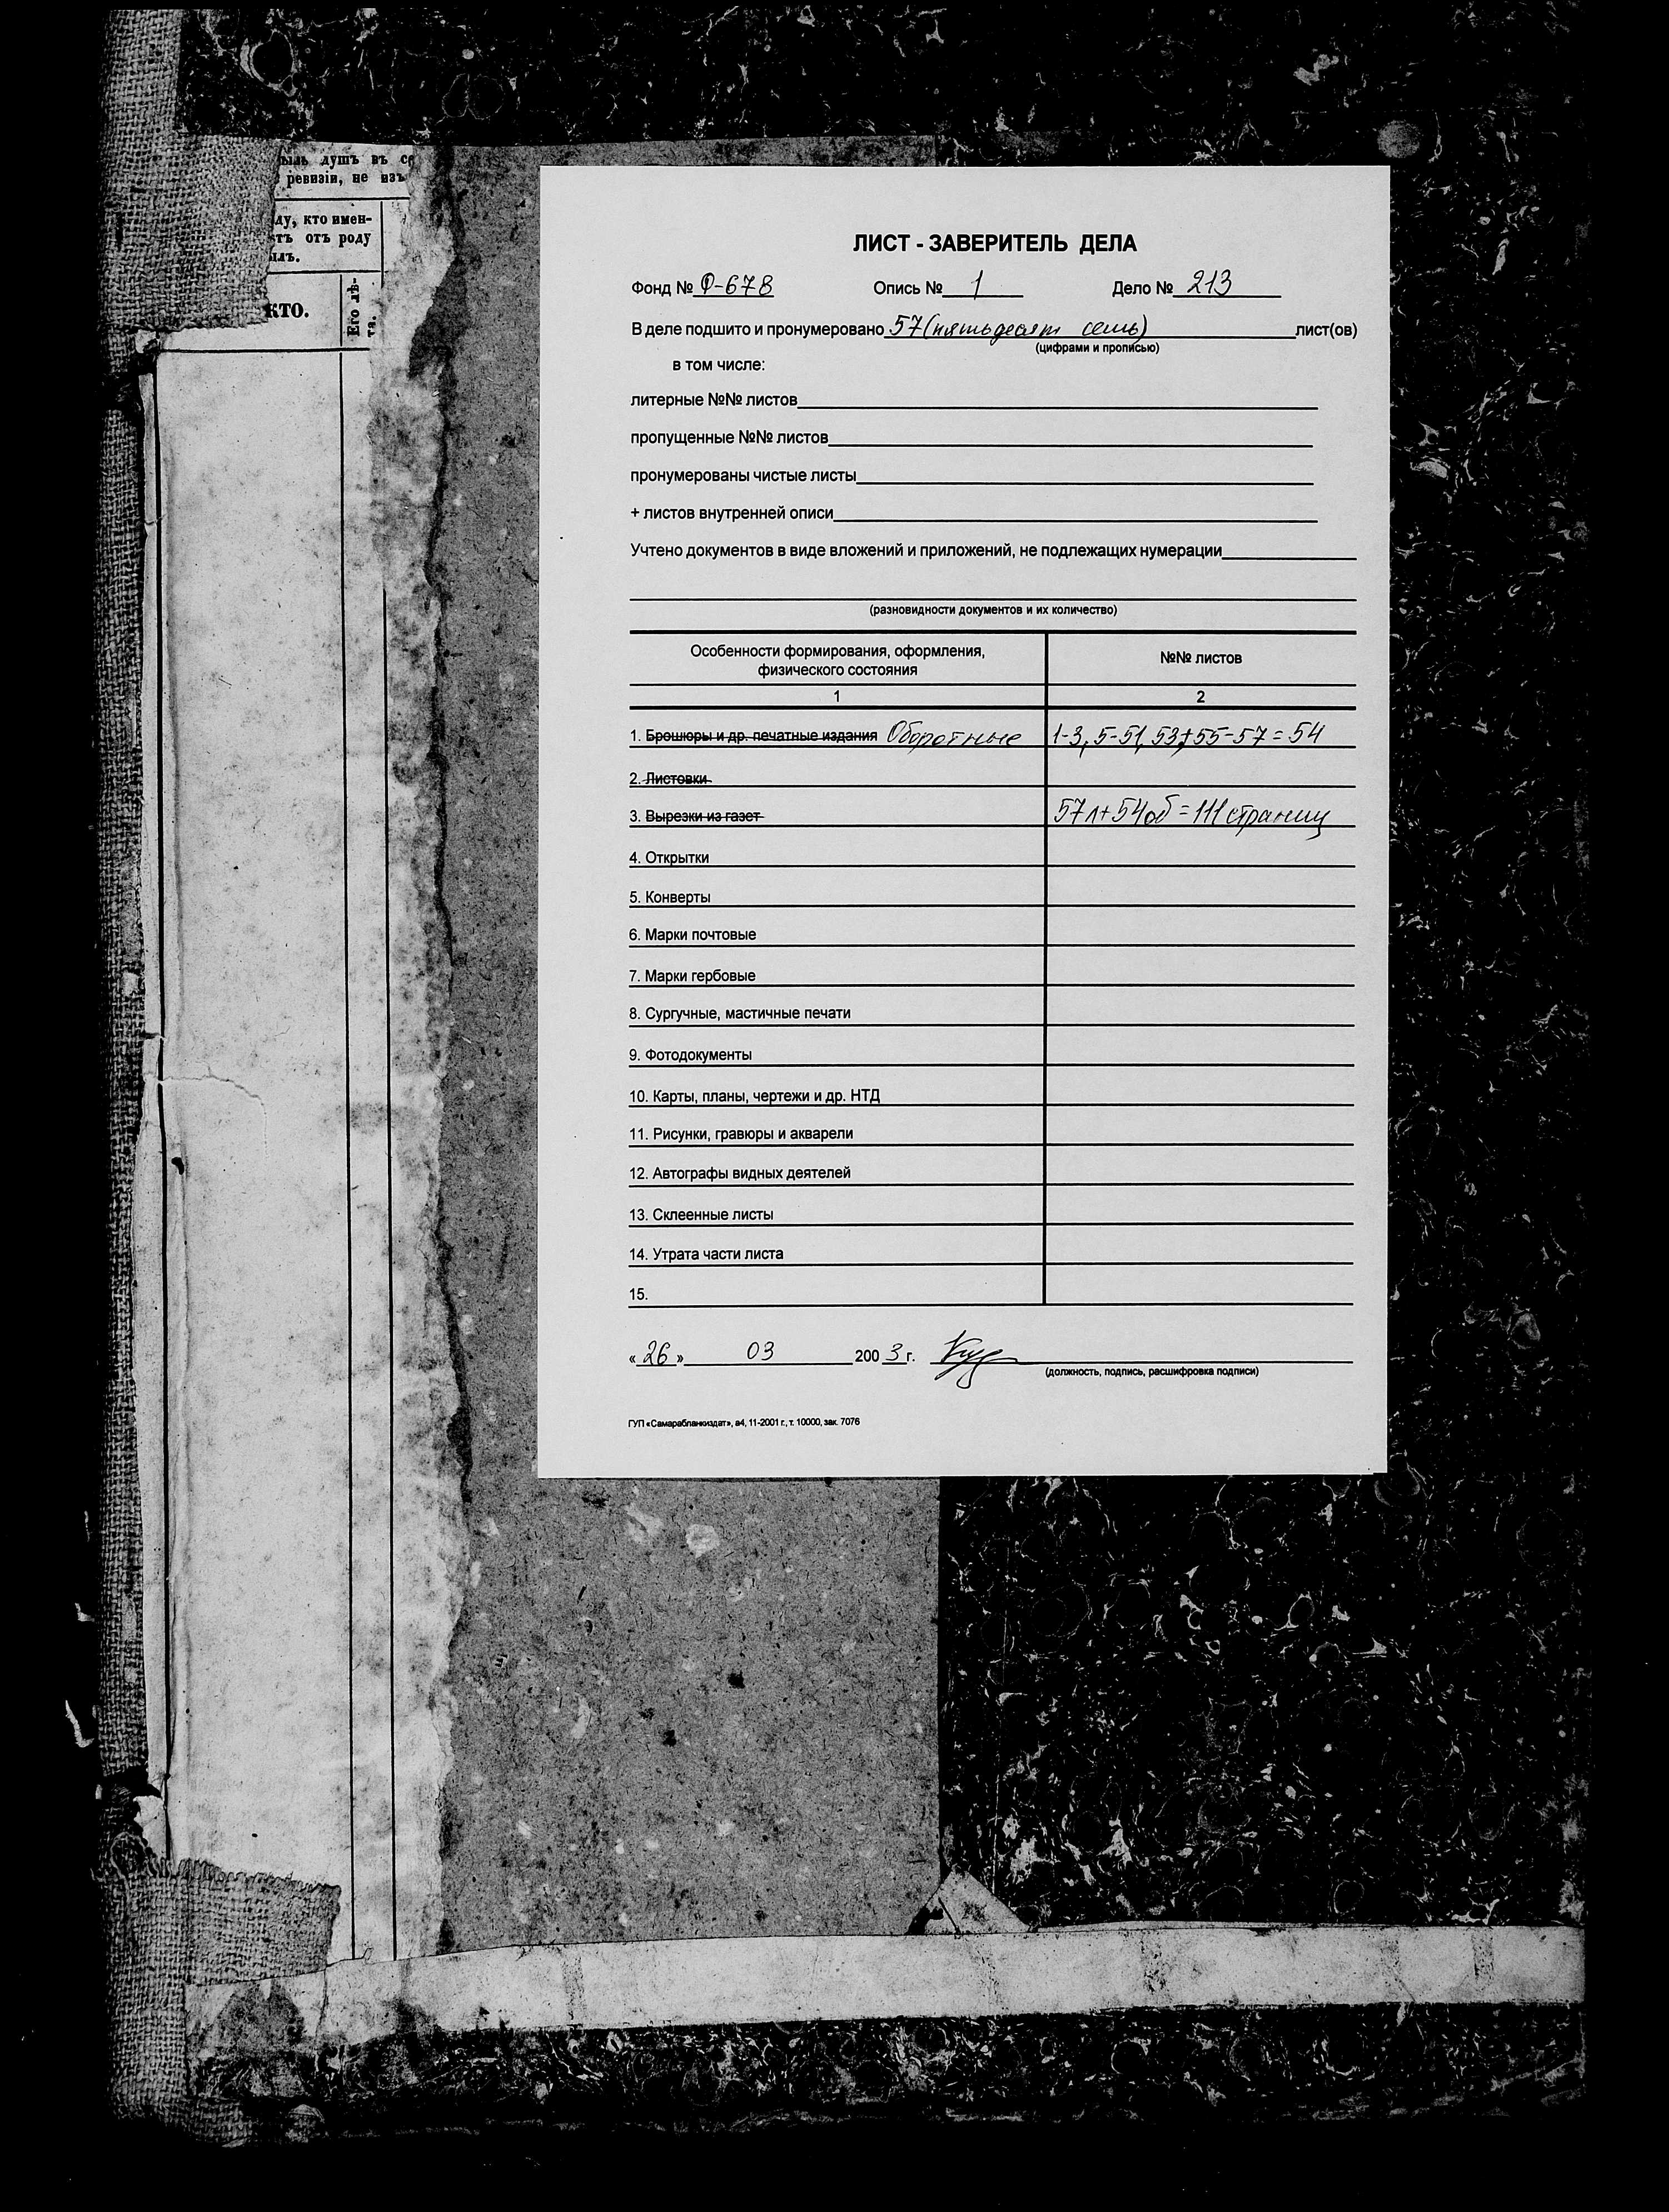 ыль душъ въ
ревизіи, не изъ
ду, кто имен-
сть отъ роду
илъ.
КТО.
Его лѣ-
та.
ЛИСТ - ЗАВЕРИТЕЛЬ ДЕЛА
Фонд № Ф-678 Опись № 1 Дело № 213
В деле подшито и пронумеровано 57 (пятьдесят семь) лист(ов)
(цифрами и прописью)
в том числе:
литерные №№ листов
пропущенные №№ листов
пронумерованы чистые листы
+ листов внутренней описи
Учтено документов в виде вложений и приложений, не подлежащих нумерации
(разновидности документов и их количество)
Особенности формирования, оформления,
физического состояния
№№ листов
1 2
1. Брошюры и др. печатные издания Оборотные 1-3, 5-51, 53, 55-57 = 54
2. Листовки
3. Вырезки из газет 57л + 54об = 111 страниц
4. Открытки
5. Конверты
6. Марки почтовые
7. Марки гербовые
8. Сургучные, мастичные печати
9. Фотодокументы
10. Карты, планы, чертежи и др. НТД
11. Рисунки, гравюры и акварели
12. Автографы видных деятелей
13. Склеенные листы
14. Утрата части листа
15.
« 26 » 03 2003 г.
(должность, подпись, расшифровка подписи)
ГУП «Самарабланкиздат», а4, 11-2001 г., т. 10000, зак. 7076